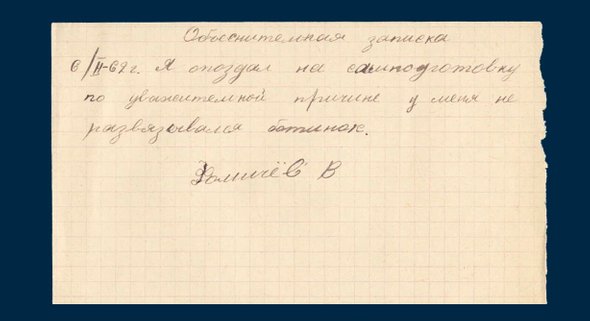 Объяснительная записка
6/II-62г. Я опоздал на самподготовку
по уважительной причине у меня не
развязывался ботинок.
Фомичёв В